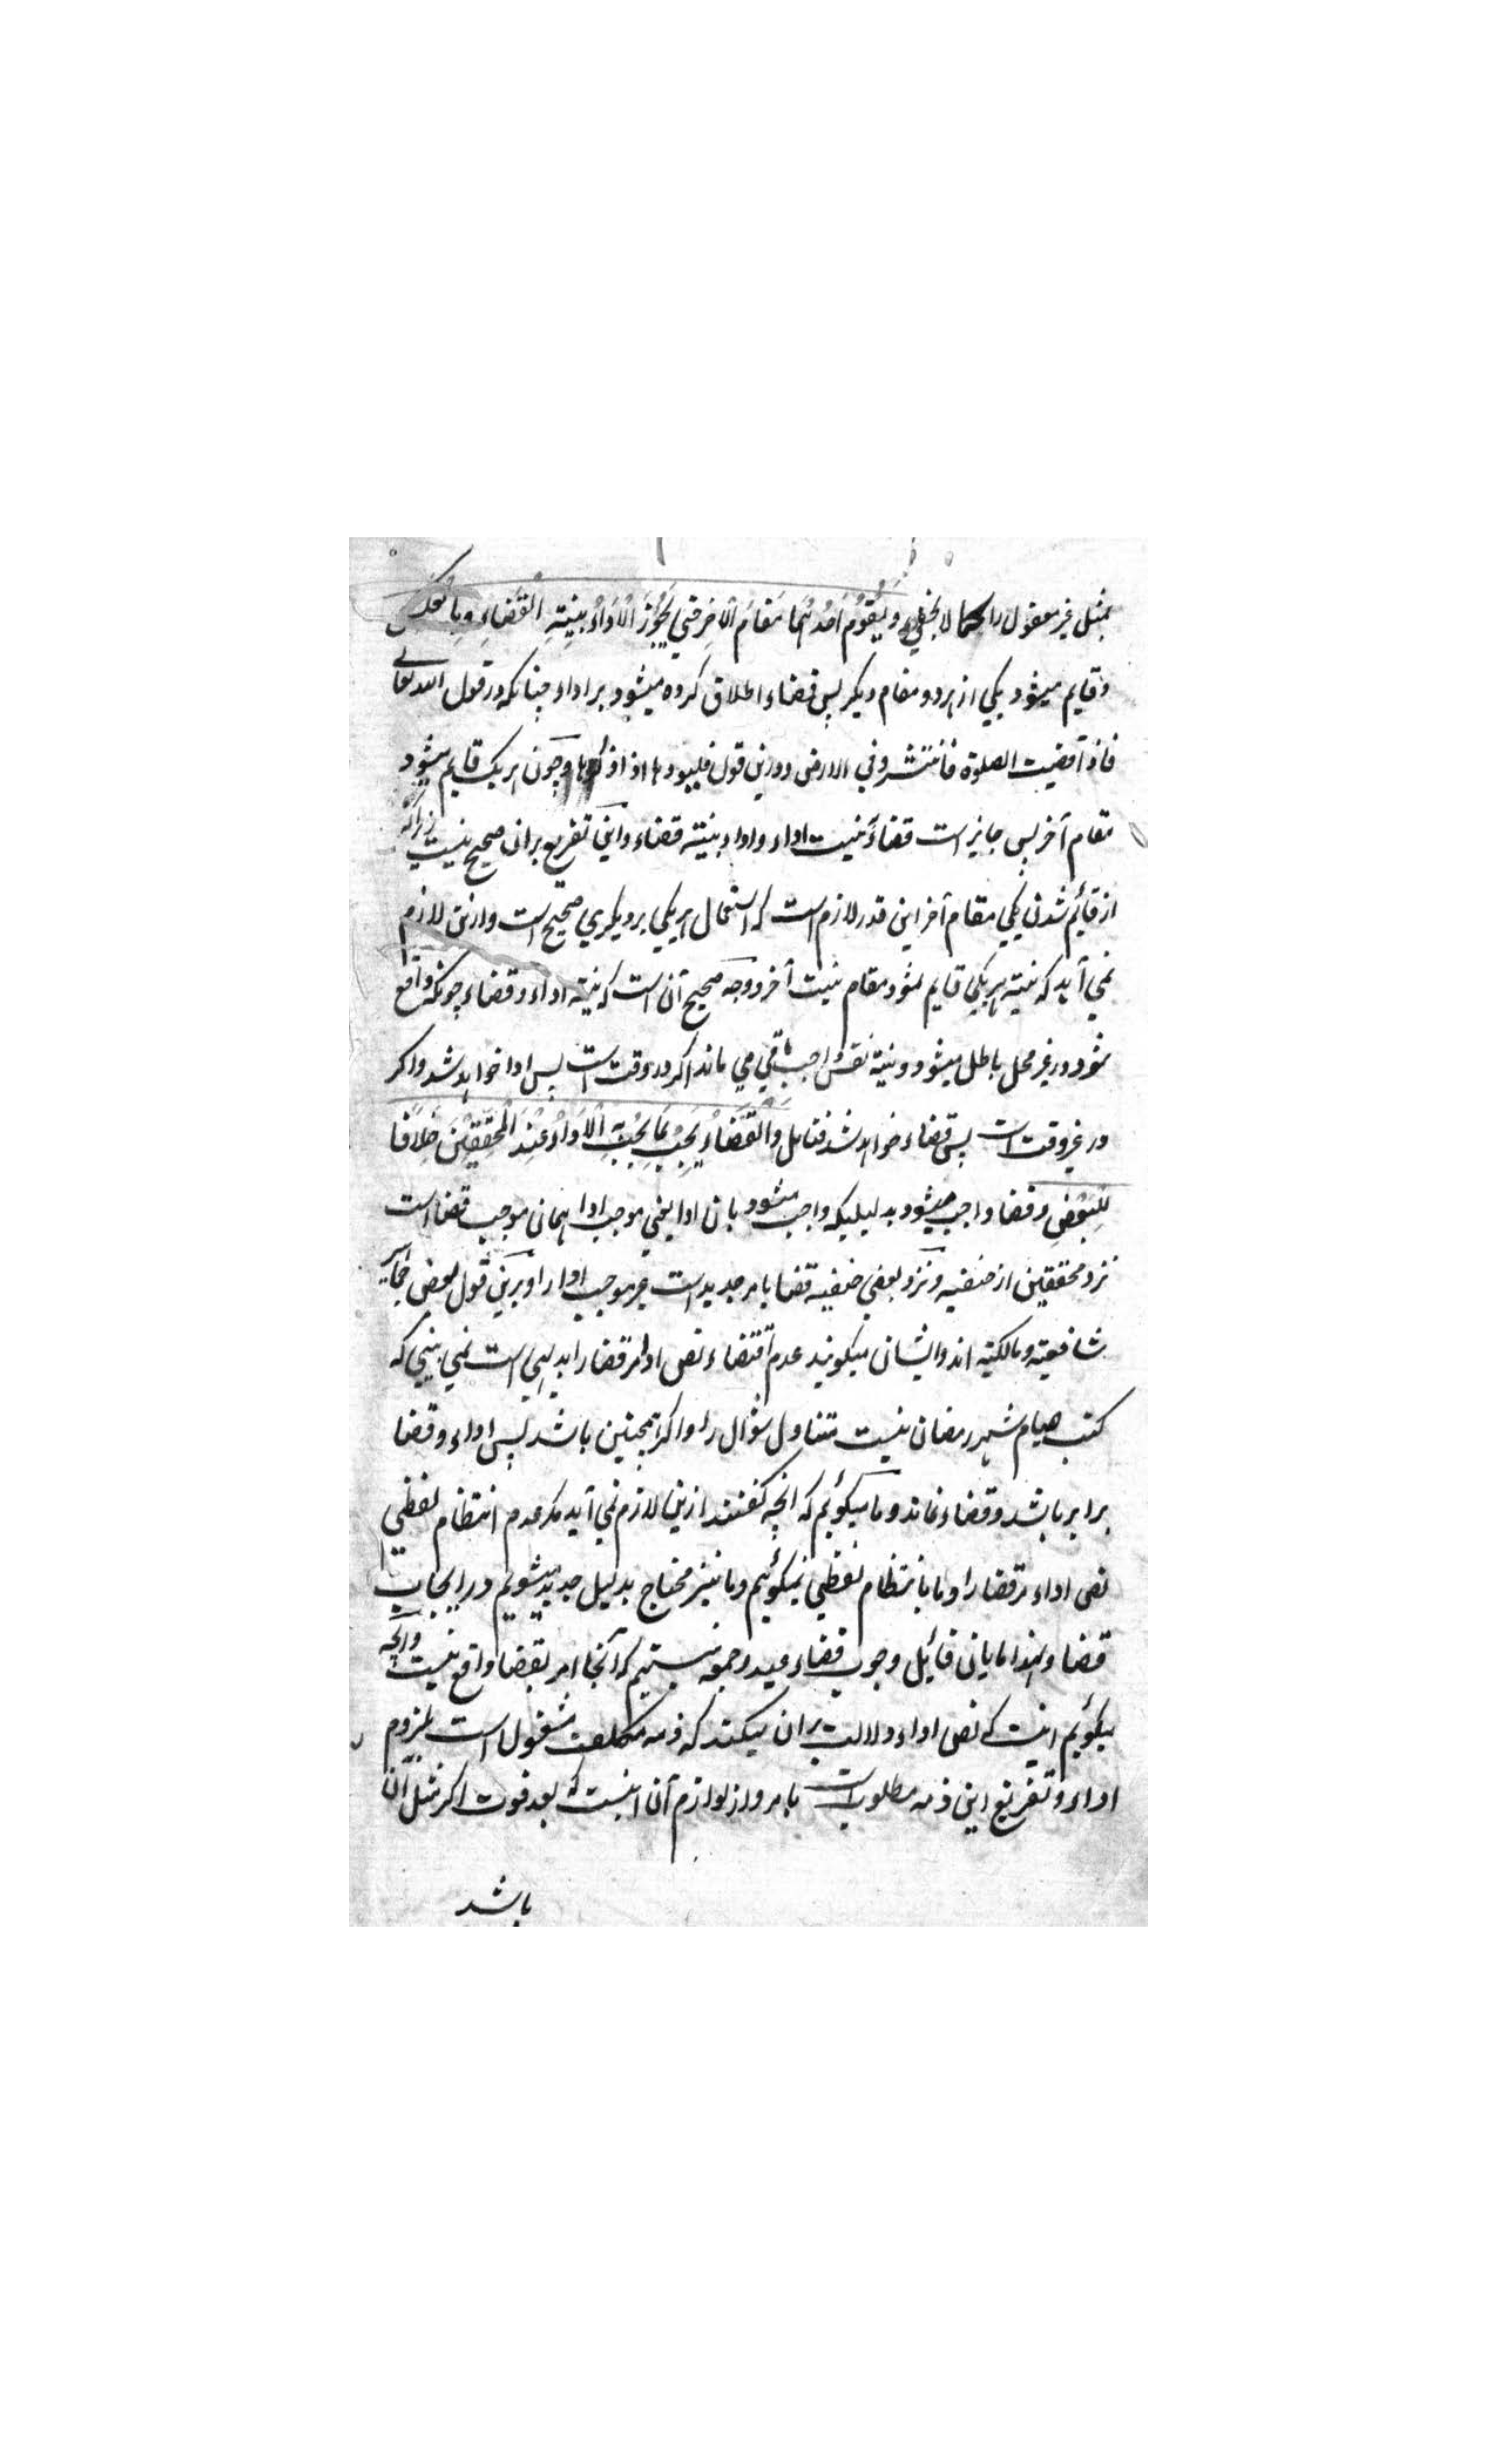 بمثل غیر معقول را کما لا یخفی وَیَقُومُ اَحَدُهُمَا مَقَامَ الْآخَرِ حَتّٰی یَجُوْزَ الْاَدَاءُ بِنِیَّةِ الْقَضَاءِ وَبِالْعَکْسِ
و قایم میشود یکی از هر دو مقام دیگر پس قضاء اطلاق کرده میشود بر اداء چنانکه در قول الله تعالے
فاذا قضیت الصلوة فانتشروا فی الارض و درین قول فلیؤدها اذا ذکرها و چون هر یک قایم میشود
مقام آخر پس جایز است قضاء بنیت اداء و اداء بنیته قضاء و این تفریع بران صحیح نیست زیراکه
از قائم شدن یکی مقام آخر این قدر لازم است که استعمال هر یکی بر دیگری صحیح است و ازین لازم
نمی آید که نیته هر یکی قایم شود مقام نیت آخر و وجه صحیح آن است که نیته اداء و قضاء چونکه واقع
شود در غیر محل باطل میشود و نیته نفس واجب باقی می ماند اگر در وقت است پس ادا خواهد شد و اگر
در غیر وقت است پس قضاء خواهد شد فتامل وَالْقَضَاءُ یَجِبُ بِمَا یَجِبُ بِهِ الْاَدَاءُ عِنْدَ الْمُحَقِّقِیْنَ خِلَافًا
لِلْبَعْضِ و قضا واجب میشود بدلیلیکه واجب میشود بان ادا یعنی موجب ادا همان موجب قضا است
نزد محققین از حنفیه و نزد بعضی حنفیه قضا بامر جدید است غیر موجب ادا را و برین قول بعض جماهیر
شافعیته و مالکیته اند و ایشان میگویند عدم اقتضاء نص ادا مر قضا را بدیهی است نمی بینی که
کتب صیام شهر رمضان نیست متناول شوال را و اگر همچنین باشد پس اداء و قضا
برابر باشد و قضاء نماند و ما میگوئیم که انچه گفتند ازین لازم نمی آید مگر عدم انتظام لفظی
نص اداء مر قضا را و ما بانتظام لفظی نمیگوئیم و ما نیز محتاج بدلیل جدید میشویم در ایجاب
قضا و لهذا مایان قائل وجوب قضاء عید و جمعه نیستیم که آنجا امر بقضا واقع نیست و انچه
میگوئیم اینست که نص اداء دلالت بران میکند که ذمه مکلف مشغول است بلزوم
اداء و تفریغ این ذمه مطلوب است بامر و از لوازم آن اینست که بعد فوت اگر مثل آن
باشد